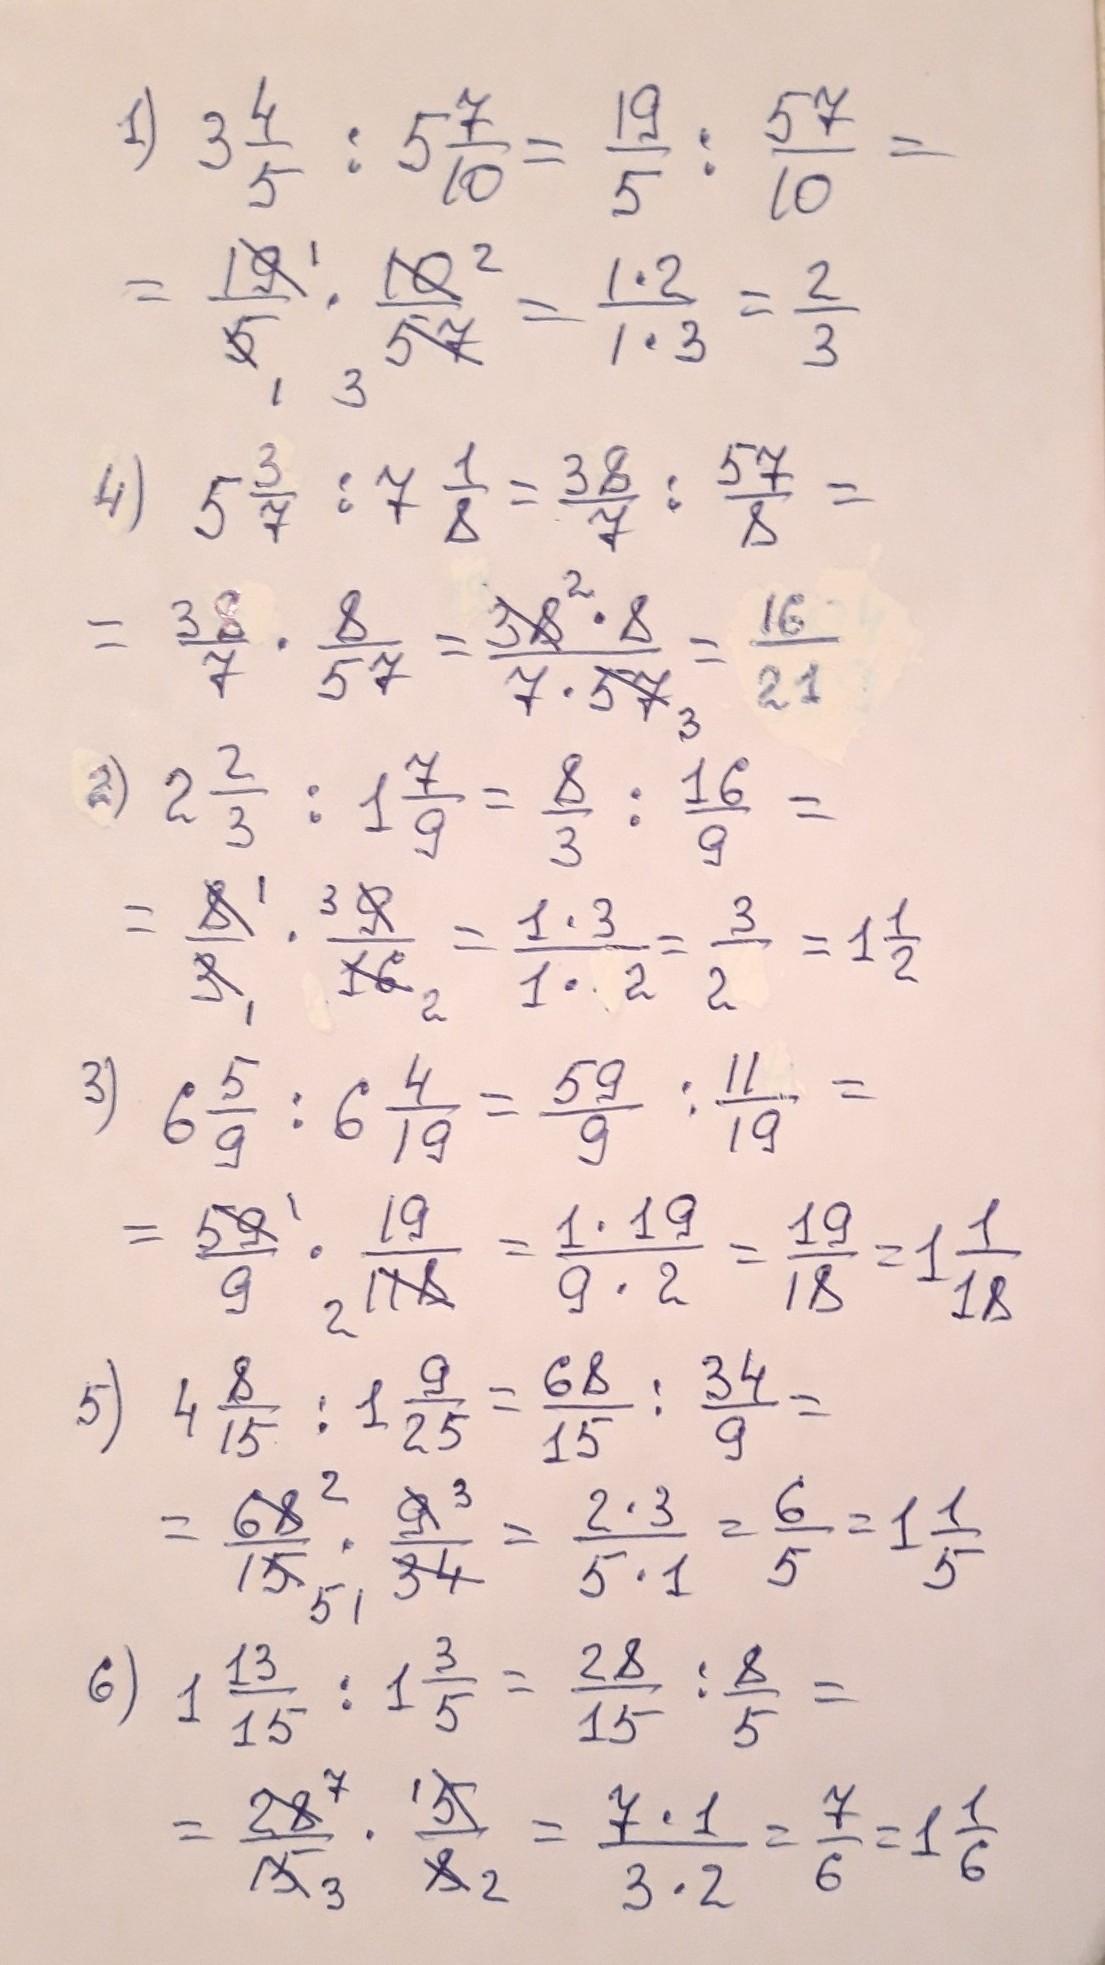 1) 3 4/5 : 5 7/10 = 19/5 : 57/10 =
= 19/5 1 1 · 10/57 2 3 = 1·2/1·3 = 2/3
4) 5 3/7 : 7 1/8 = 38/7 : 57/8 =
= 38/7 · 8/57 = 38 2 · 8/7 · 57 3 = 16/21
2) 2 2/3 : 1 7/9 = 8/3 : 16/9 =
= 8/3 1 1 · 3 9/16 2 = 1·3/1·2 = 3/2 = 1 1/2
3) 6 5/9 : 6 4/19 = 59/9 : 11/19 =
= 59/9 1 · 19/118 2 = 1·19/9·2 = 19/18 = 1 1/18
5) 4 8/15 : 1 9/25 = 68/15 : 34/9 =
= 68/15 2 5 · 9/34 3 1 = 2·3/5·1 = 6/5 = 1 1/5
6) 1 13/15 : 1 3/5 = 28/15 : 8/5 =
= 28/15 7 3 · 1 5/8 2 = 7·1/3·2 = 7/6 = 1 1/6